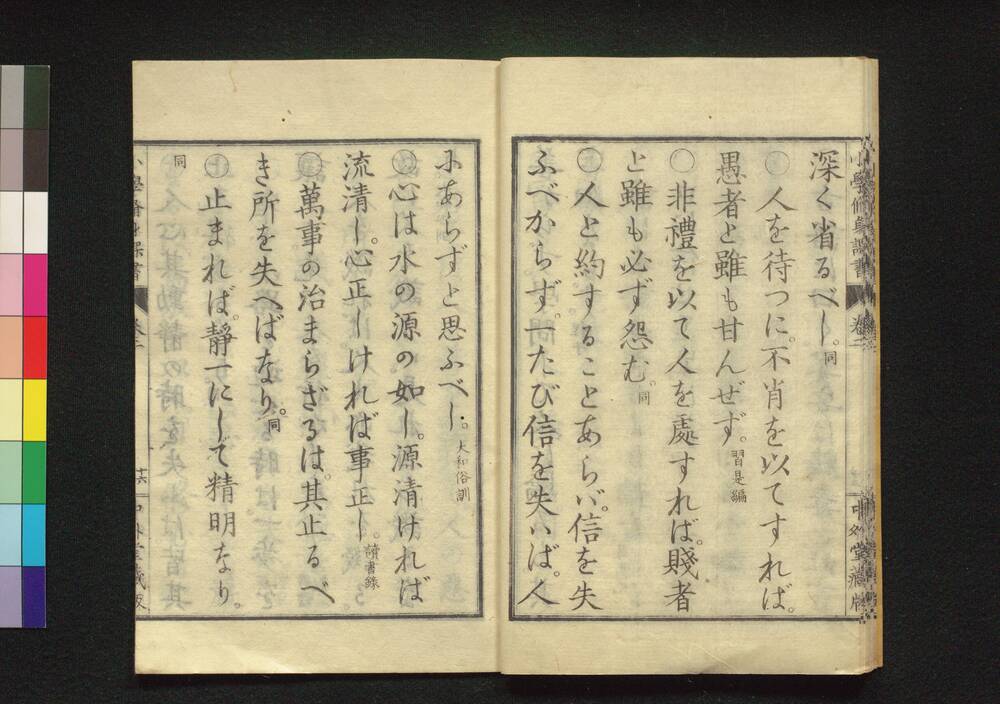 小學修身課書 卷二 中外堂藏版
深く省るべし。同
〇人を待つに。不肖を以てすれば。
愚者と雖も甘んぜず。習是編
〇非禮を以て人を處すれば。賤者
と雖も必ず怨む。同
〇人と約することあらバ。信を失
ふべからず。一たび信を失へば。人
にあらずと思ふべし。大和俗訓
〇心は水の源の如し。源清ければ
流清し。心正しければ事正し。讀書錄
〇萬事の治まらざるは。其止るべ
き所を失へばなり。同
〇止まれば。靜一にして精明なり。
同
小學修身課書 卷二 十六 中外堂藏版